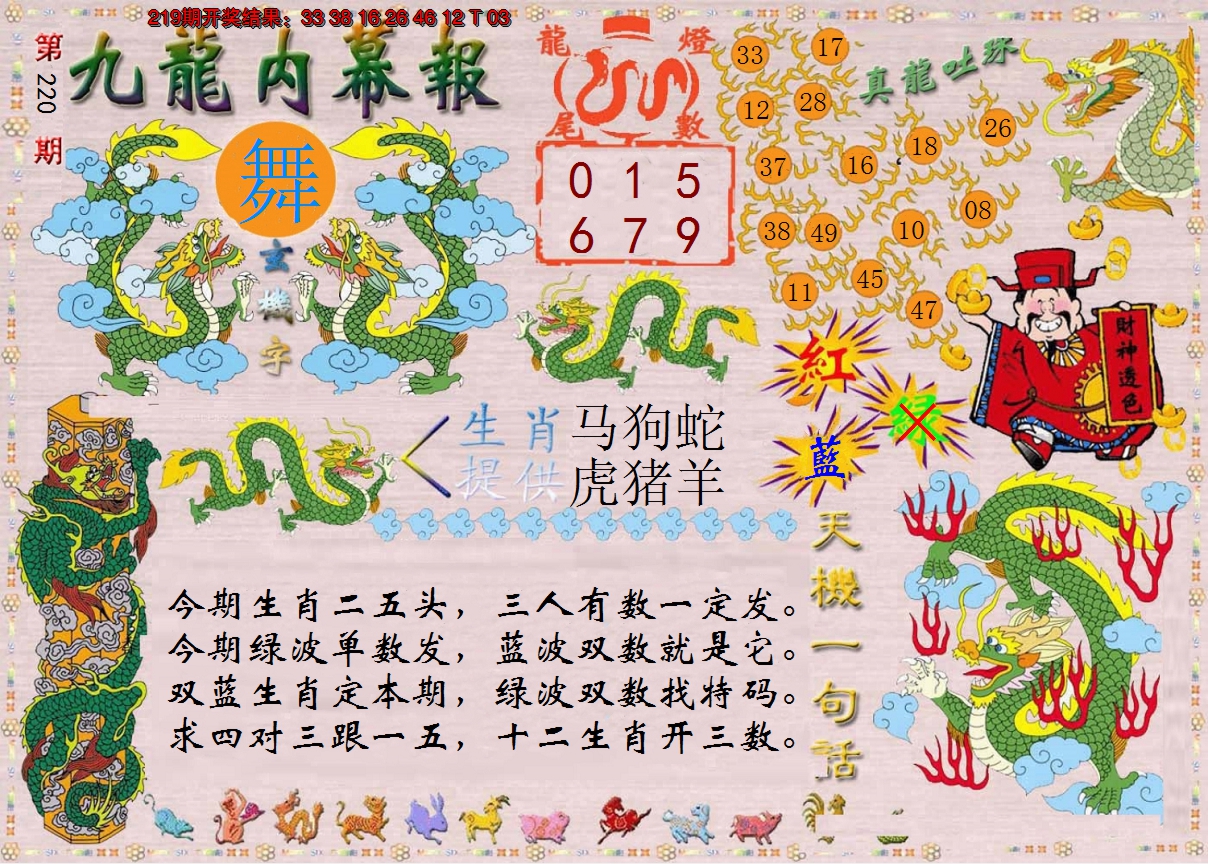 219期开奖结果：33 38 16 26 46 12 T 03
第220期
九龍内幕報
龍燈尾數
0 1 5
6 7 9
真龍吐珠
33 17
12 28
37 16 18 26
38 49 10 08
11 45 47
舞
玄機字
財神透色
紅
绿
藍
生肖提供
马狗蛇
虎猪羊
今期生肖二五头，三人有数一定发。
今期绿波单数发，蓝波双数就是它。
双蓝生肖定本期，绿波双数找特码。
求四对三跟一五，十二生肖开三数。
天機一句話